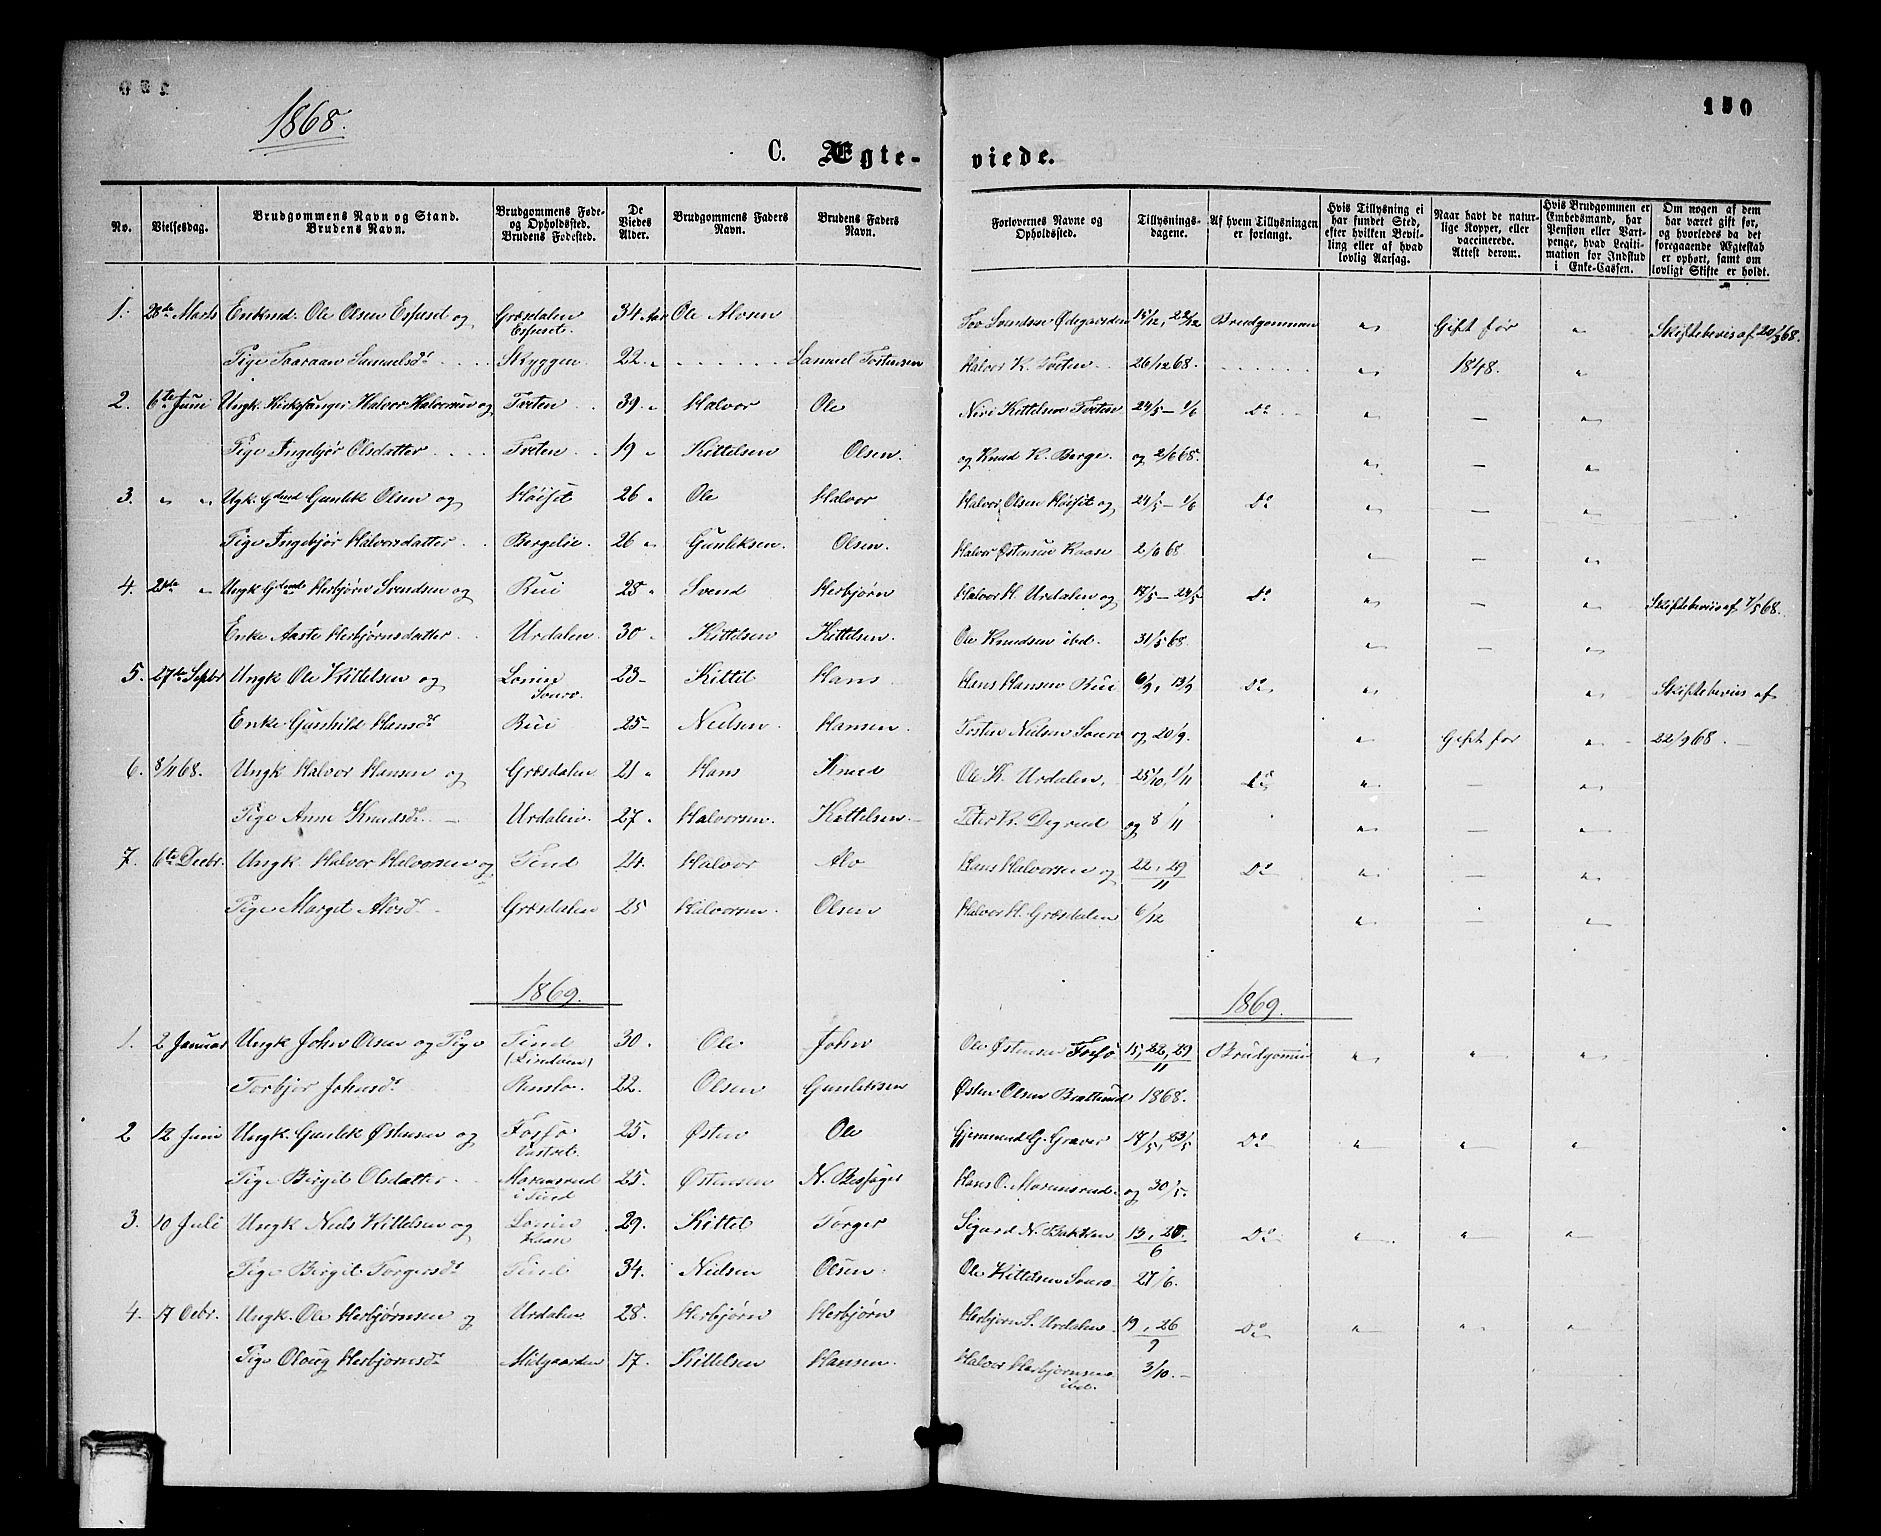 1868.
150
C. Ægte-
viede.
No. Vielsesdag. Brudgommens Navn og Stand. Brudens Navn. Brudgommens Føde- og Opholdssted. Brudens Fødested. De Viedes Alder. Brudgommens Faders Navn. Brudens Faders Navn. Forlovernes Navne og Opholdssted. Tillysnings-dagene. Af hvem Tillysningen er forlangt. Hvis Tillysning ei har fundet Sted, efter hvilken Bevilling eller af hvad lovlig Aarsag. Naar havt de naturlige Kopper, eller vaccinerede. Attest derom. Hvis Brudgommen er Embedsmand, har Pension eller Vartpenge, hvad Legitimation for Indskud i Enke-Cassen. Om nogen af dem har været gift før, og hvorledes da det foregaaende Ægteskab er ophørt, samt om lovligt Skifte er holdt.
1. 28de Marts Enkmd. Ole Olsen Esfuset og Græsdalen Esfuset. 34 Aar Ole Alvsen Tov Svendsen Ødegaarden 15/12, 22/12 Brudgommen " Gift før " Skiftebevis af 20/3 68.
Pige Taaraan Samuelsdr Skyggen 22 " Samuel Tostensen Halvor K. Tveten 26/12 68. " 1848. "
2. 6te Juni Ungk. Kirksanger Halvor Halvorsen og Tveten 39 " Halvor Ole Niri Kittelsen Tveten 24/5 - 1/6 Do " - "
Pige Ingebjør Olsdatter Tveten 19 " Kittelsen Olsen. og Knud K. Berge og 2/6 68. " - "
3. " " Ugk. Gdmd Gunlik Olsen og Høiset 26 " Ole Halvor Halvor Olsen Høiset og 24/5 - 1/6 Do " - "
Pige Ingebjør Halvorsdatter Bergelie 26 " Gunleksen. Olsen. Halvor Østensen Kaase 2/6 68 " - "
4. 21de " Ungk. Gdmd Herbjørn Svendsen og Rui 28 " Svend Herbjørn Halvor H. Urdalen og 17/5 - 24/5 Do " - " Skiftebevis af 7/5 68.
Enke Aaste Herbjørnsdatter Urdalen 30 " Kittelsen Kittelsen. Ole Knudsen ibd. 31/5 68. " - "
5. 27de Septbr Ungk Ole Kittelsen og Lonin Souro 23 - Kittil Hans Hans Hansen Rui 6/9, 13/9 Do " " Skiftebevis af
Enke Gunhild Hansdr Rui 25 - Nielsen. Hansen. Tosten Nielsen Souro og 20/9. " Gift før " 22/9 68. -
6. 8/11 68. Ungk Halvor Hansen og Græsdalen 21 " Hans Knud Ole K. Urdalen, 25/10, 1/11 Do " - "
Pige Anne Knudsdr Urdalen. 27 " Halvorsen. Kittelsen. Peter K. Degrud og 8/11 " - "
7. 6te Decbr. Ungk Halvor Halvorsen og Tind 24. Halvor Alv Hans Halvorsen og 22, 29/11 Do " - "
Pige Margit Alvsdr Græsdalen 25 Halvorsen. Olsen Halvor H. Græsdalen 6/12 " - "
1869. 1869.
1. 2 Januar Ungk John Olsen og Pige Tind (Lindven) 30. Ole John Ole Østensen Forfø 15, 22, 29/11 Brudgommen " " "
Torbjør Johnsdr 22. Olsen Gunleksen Østen Olsen Brattund 1868.
2 12 Juni Ungk. Gunlek Østensen og Forfø 25. Østen Ole Gjermund G. Graver 18/5, 23/5 Do " " "
Pige Birgit Olsdatter Marumsrud i Tind 25. Østensen N. Busfager Hans O. Marumsrud og 30/5.
3. 10 Juli Ungk Niels Kittelsen og Lonin Kaase 29. Kittil Torger Sigurd N. Bakken 13, 20/6 Do " " "
Pige Birgit Torgersdr Tind 34. Nielsen Olsen. Ole Kittelsen Souro 27/6.
4. 17 Octbr. Ungk. Ole Herbjørnsen og Urdalen 28. Herbjørn Herbjørn Herbjørn S. Urdalen 19, 26/9 Do " " "
Pige Oloug Herbjørnsdr Midgaarden 17. Kittelsen Hansen. Halvor Herbjørnsen ibd. 3/10. -